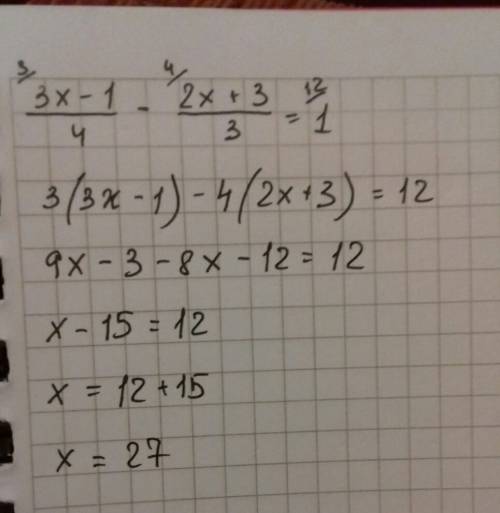 3/ 3x - 1 / 4 - 4/ 2x + 3 / 3 = 12/ 1
3(3x - 1) - 4(2x + 3) = 12
9x - 3 - 8x - 12 = 12
x - 15 = 12
x = 12 + 15
x = 27